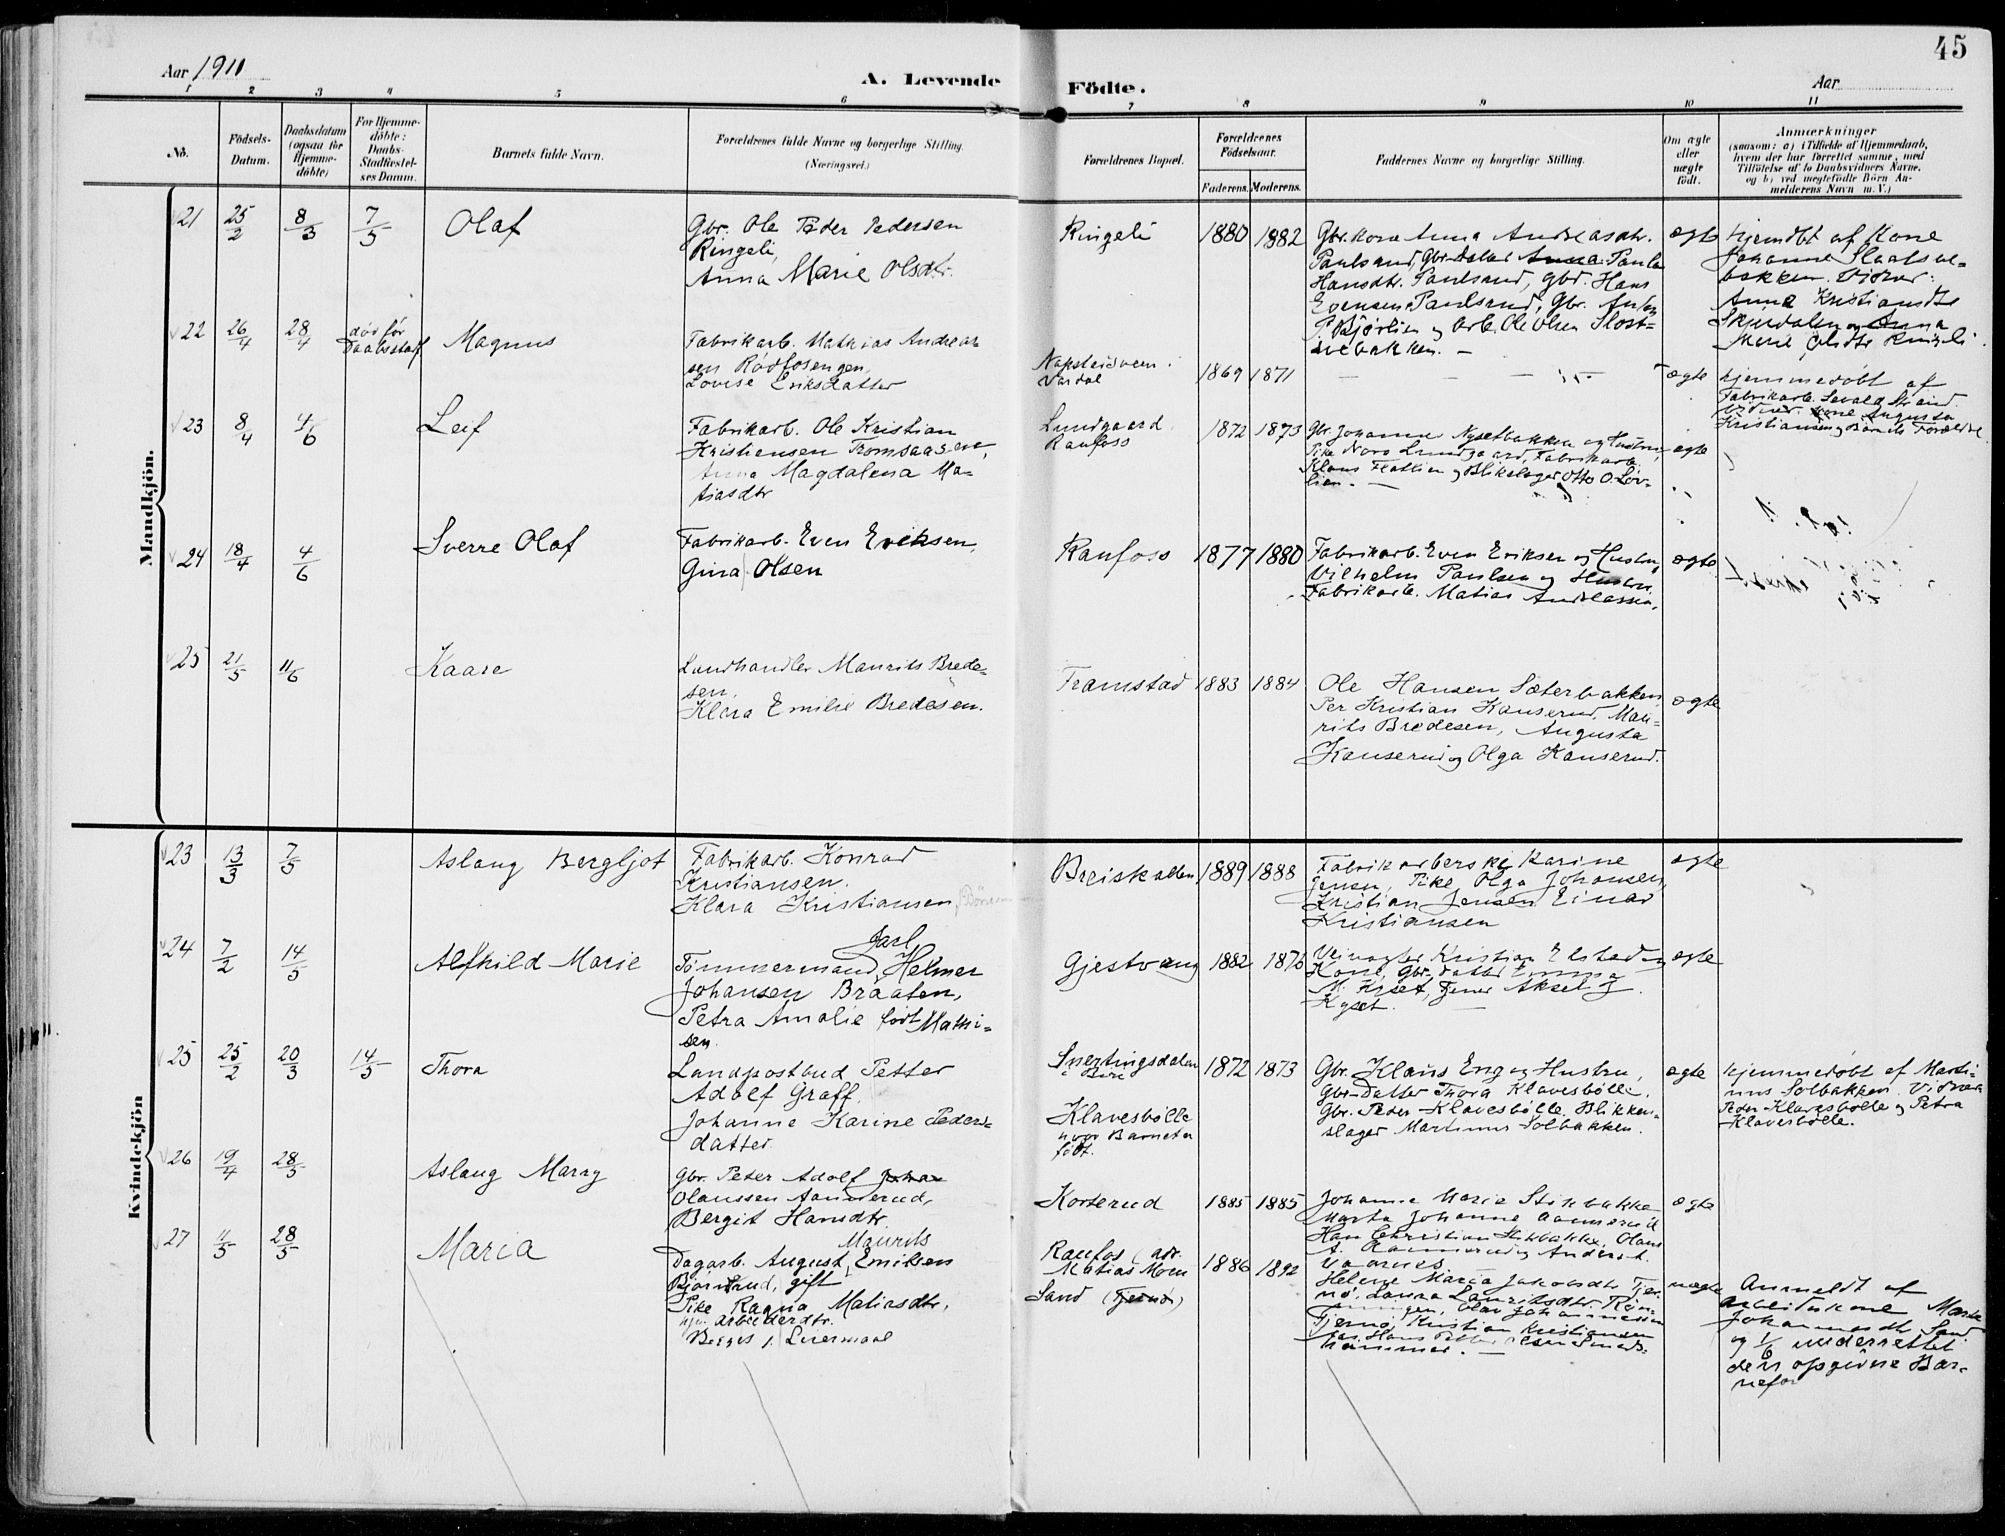 45
Aar 1911
A. Levende Födte.
Aar
1 2 3 4 5 6 7 8 9 10 11
No.
Födsels-Datum.
Daabsdatum (ogsaa for Hjemme-döbte)
For Hjemme-döbte: Daabs-Stadfæstel-ses Datum.
Barnets fulde Navn.
Forældrenes fulde Navne og borgerlige Stilling.
(Næringsvei.)
Forældrenes Bopæl.
Forældrenes Födselsaar.
Faderens. Moderens.
Faddernes Navne og borgerlige Stilling.
Om ægte eller uægte födt.
Anmærkninger
(saasom: a) i Tilfælde af Hjemmedaab,
hvem der har forrettet samme, med
Tilföielse af to Daabsvidners Navne,
og b) ved uægtefödte Börn An-
melderens Navn m. V.)
Mandkjön.
21 25/2 8/3 7/5 Olaf
Gbr. Ole Peder Pedersen
Ringeli,
Anna Marie Olsdtr.
Ringeli 1880 1882
Gbr.kone Anna Andreasdtr.
Paulsrud, Gbr.datter Paula
Hansdtr. Paulsrud, gbr. Hans
Evensen Paulsrud, Gbr. Anton
og Arb. Ole Olsen Slost-
svebakken. —
ægte
hjemdbt af Kone
Johanne Slaatsve-
bakken. Vidner:
Anna Kristiansdtr
Skjerdalen og Anna
Merie Olsdtr Ringeli.
22 26/4 28/4 död för Daabsstadf Magnus
Fabrikarb. Mathias Andreas-
sen Rödfosengen,
Lovise Eriksdatter
Vardal 1869 1871
— — — ægte
hjemmedöbt af
Fabrikarb. Sevald Strand.
Vidner. Kone Augusta
Kristiansen og Barnets Forældre
23 8/4 4/6 Leif
Fabrikarb. Ole Kristian
Kristiansen Tromsaasen,
Anna Magdalena Ma-
tiasdtr
Lundgaard
Raufoss 1872 1873
Gbr. Johannes Nysetbakken og Hustru,
Pike Nora Lundgaard, Fabrikarb.
Klaus Flatlien og Blikslager Otto O. Löv-
lien. —
ægte
24 18/4 4/6 Sverre Olaf
Fabrikarb. Even Eriksen,
Gina Olsen
Raufoss 1877 1880
Fabrikarb. Even Eriksen og Hustru,
Vilhelm Paulsen og Hustru,
Fabrikarb. Matias Andreassen.
ægte
25 21/5 11/6 Kaare
Landhandler Maurits Brede-
sen,
Klara Emilie Bredesen.
Framstad 1883 1884
Ole Hansen Sæterbakken,
Per Kristian Kanserud, Mau-
rits Bredesen, Augusta
Kanserud og Olga Kanserud.
ægte
Kvindekjön
23 13/3 7/5 Aslaug Bergljot
Fabrikarb. Konrad
Kristiansen.
Klara Kristiansen
Breiskallen 1889 1888
Fabrikarberske Karine
Jensen, Pike Olga Johansen,
Kristian Jensen, Einar
Kristiansen
ægte
24 7/2 14/5 Alfhild Marie
Jarl
Tömmermand Helmer
Johansen Braaten,
Petra Amalie födt Mathi-
sen.
Gjestvang 1882 1876
Veivogter Kristian Elstad og
Kone, Gbr.datter Emma
M. Kyset, Tjener Aksel J.
Kyset. —
ægte
25 25/2 20/3 14/5 Thora
Landpostbud Petter
Adolf Graff.
Johanne Karine Peders-
datter.
Snertingsdalen
i Biri
Klavesbölle
hvor Barnet er
födt.
1872 1873
Gbr. Klaus Eng og Hustru,
Gbr-Datter Thora Klavesbölle.
Gbr. Peder Klavesbölle. Blikken-
slager Martinus Solbakken.
ægte
hjemmedöbt af Marti-
nus Solbakken. Vidner
Peder Klavesbölle og Petra
Klavesbölle.
26 19/4 28/5 Aslaug Marry
Gbr. Peter Adolf
Olaussen Aannerud,
Bergit Hansdtr.
Korterud 1885 1885
Johanne Marie Stikbakke
Marta Johanne Aannerud
Han Christian Stikbakke, Olaus
A. Aannerud og Anders
ægte
27 11/5 28/5 Maria
Maurits
Dagarb. August Emilsen
Björnerud, gift
Pike Ragna Matiasdtr,
arbeiderdtr.
Raufos (adr.
Matias Moen
Sand
1886 1892
Helene Maria Jakobsdtr Tjer-
nö, Laura Lauritsdtr.
Olav Johannessen
Tjernö, Kristian Kristiansen
Hans Petter
hammer. —
uægte
Anmeldt af
arbeiderkone Marte
Johannesdtr Sand
og 1/6 underrettet
den opgivne Bar-
nefar